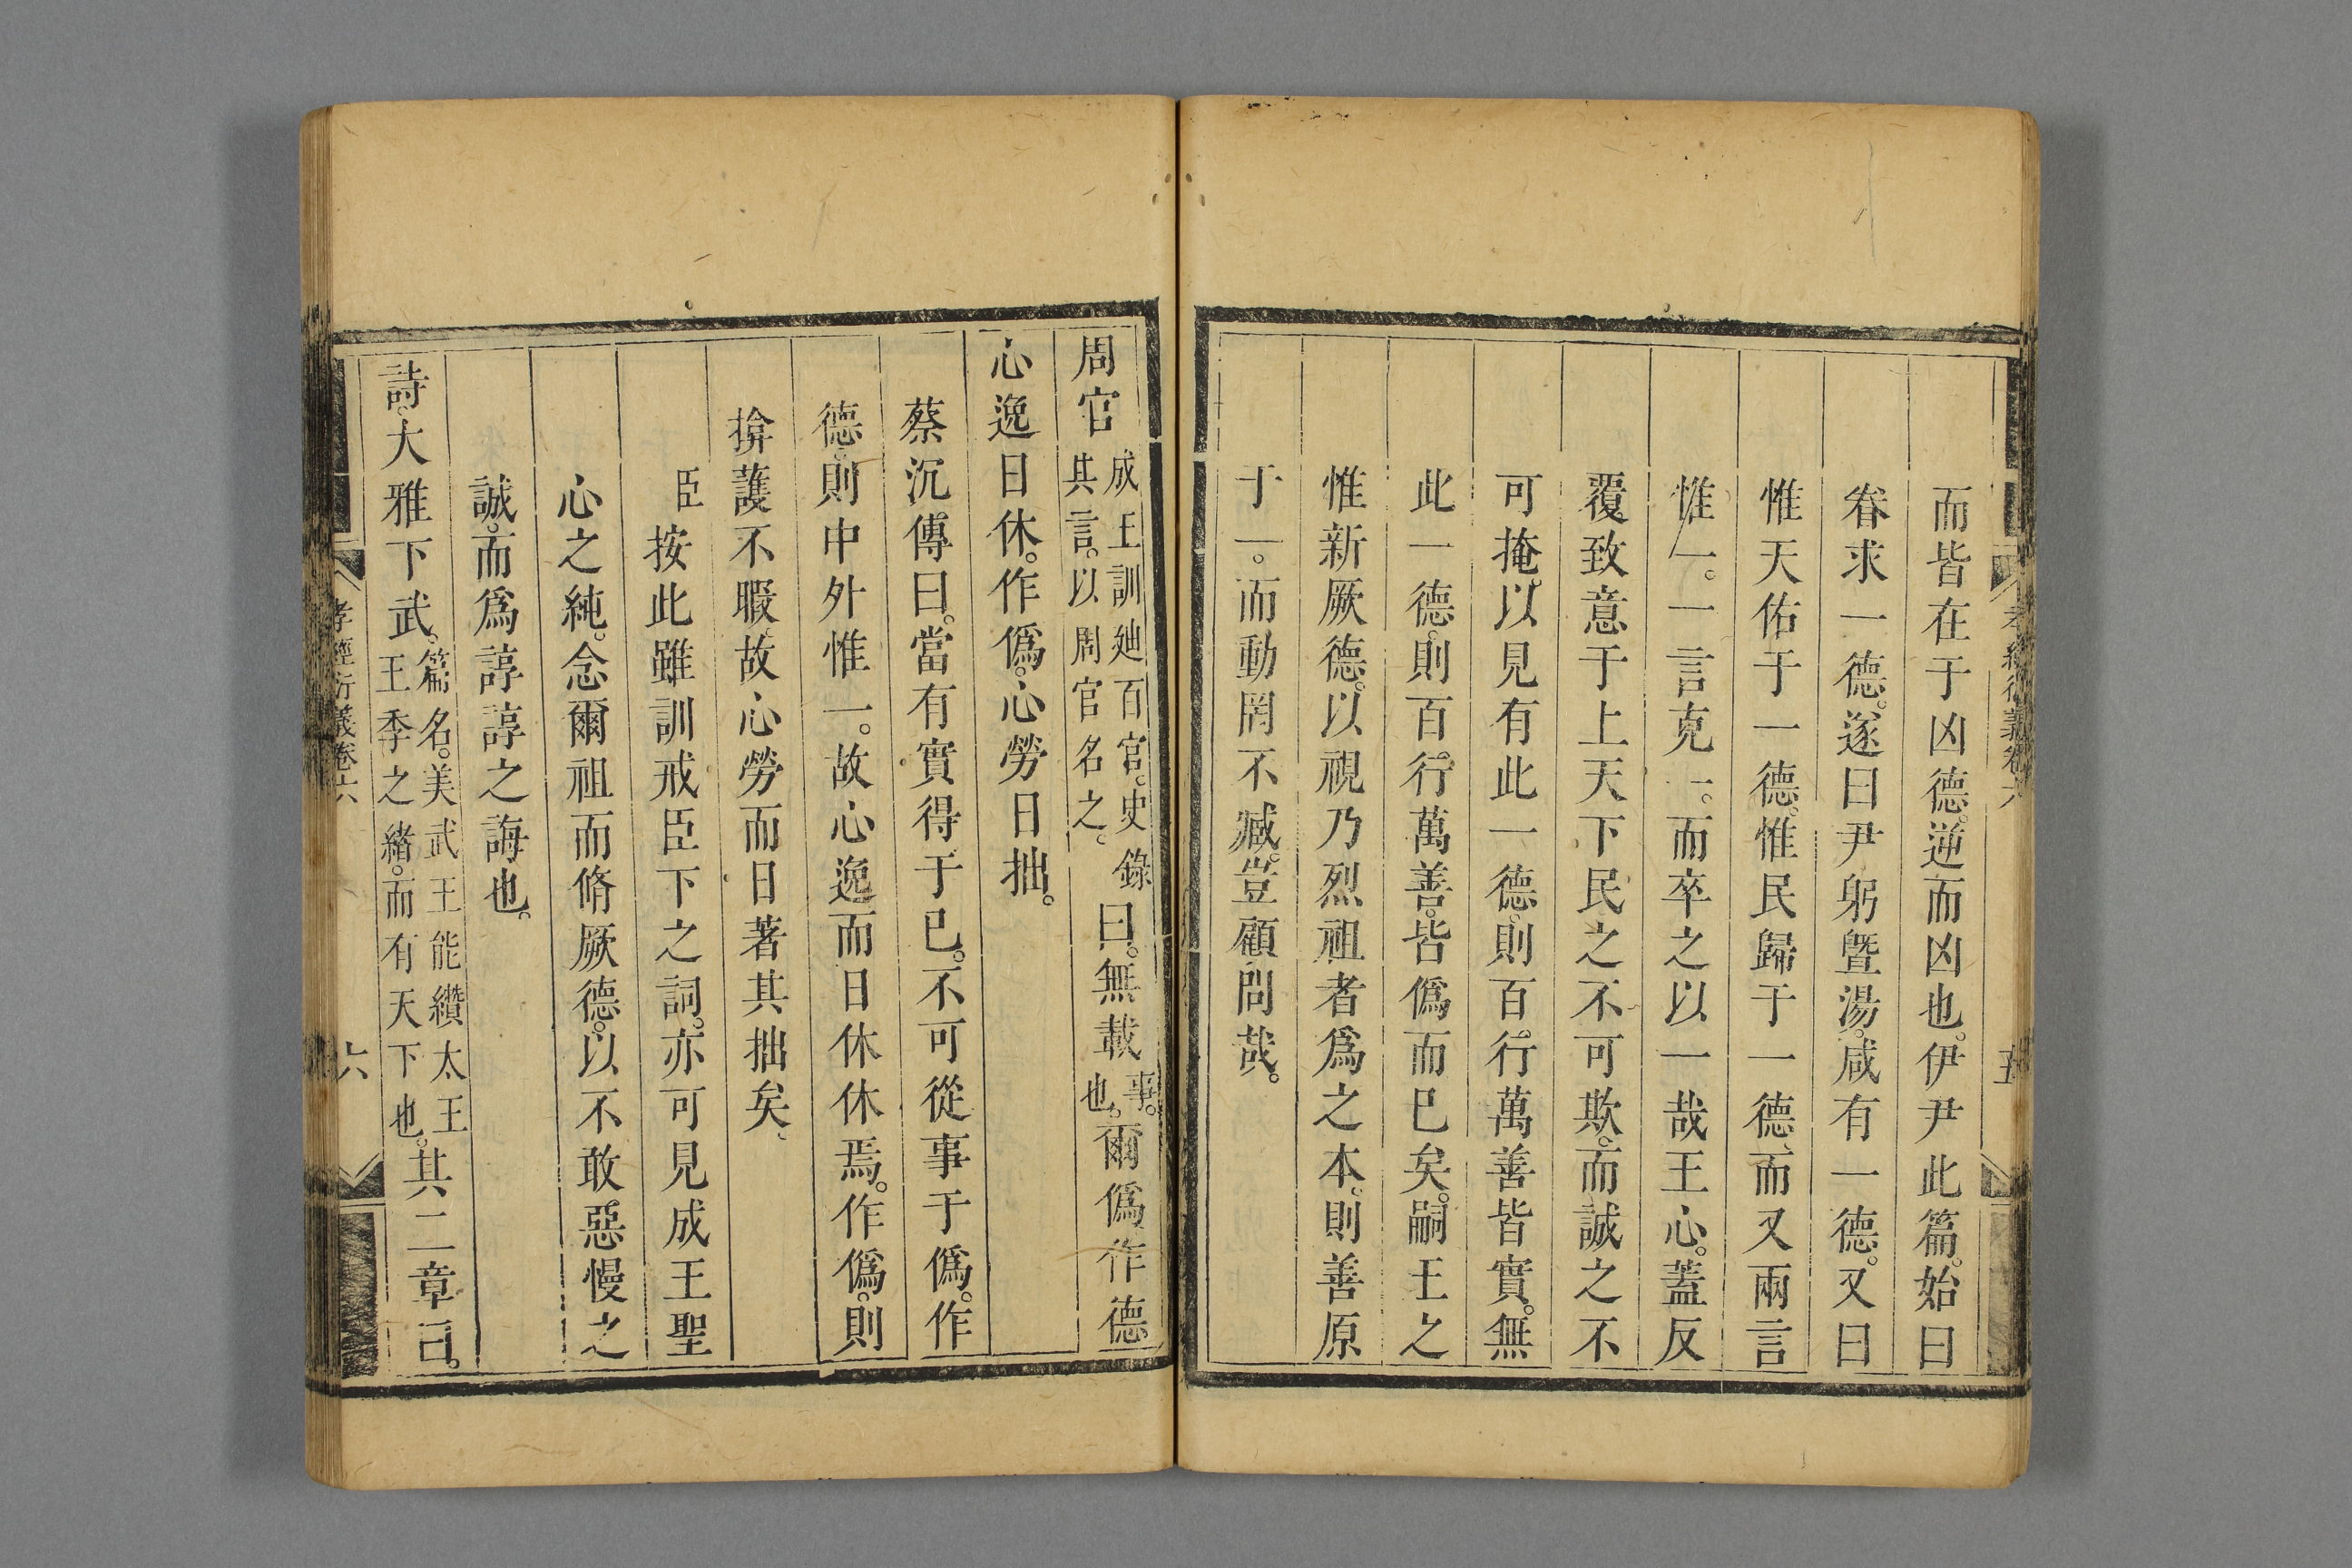 孝經衍義卷六
五
而皆在于凶德。逆而凶也。伊尹此篇。始曰
眷求一德。遂曰尹躬曁湯。咸有一德。又曰
惟天佑于一德。惟民歸于一德。而又兩言
惟一。一言克一。而卒之以一哉王心。蓋反
覆致意于上天下民之不可欺。而誠之不
可掩。以見有此一德。則百行萬善皆實。無
此一德。則百行萬善。皆僞而已矣。嗣王之
惟新厥德。以視乃烈祖者爲之本。則善原
于一。而動罔不臧。豈顧問哉。
周官成王訓廸百官。史錄其言。以周官名之。曰。無載事。也。爾僞作德
心逸日休。作僞。心勞日拙。
蔡沉傳曰。當有實得于已。不可從事于僞。作
德。則中外惟一。故心逸而日休休焉。作僞。則
揜護不暇。故心勞而日著其拙矣。
臣按此雖訓戒臣下之詞。亦可見成王聖
心之純。念爾祖而脩厥德。以不敢惡慢之
誠。而爲諄諄之誨也。
詩大雅下武。篇名。美武王能纘太王王季之緒。而有天下也。其二章曰。
孝經衍義卷六
六